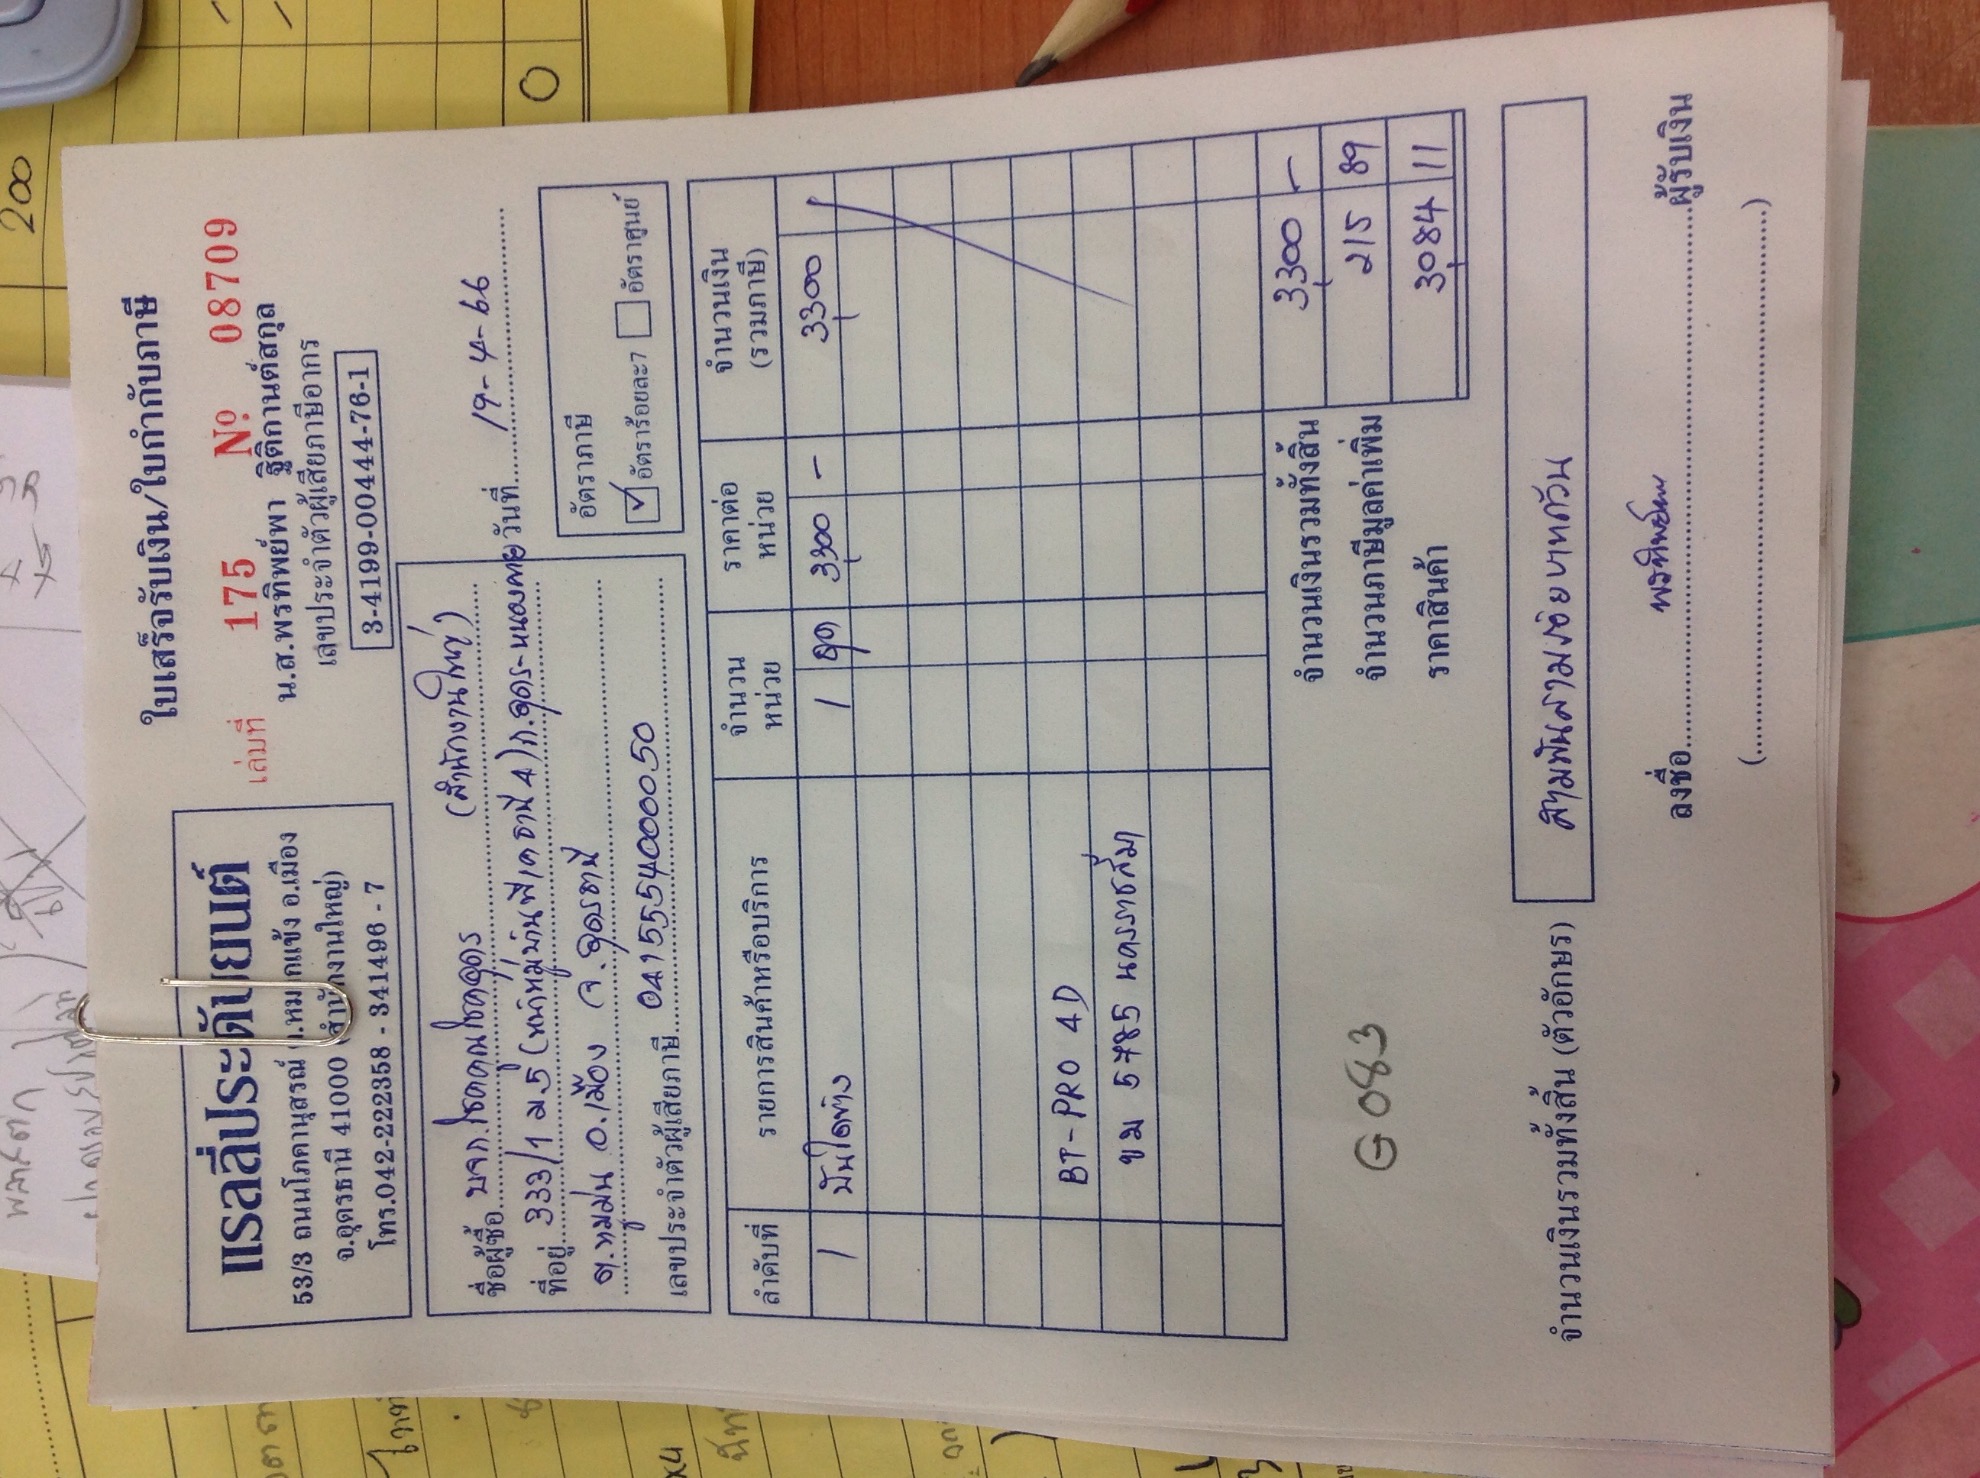 แรลลี่ประดับยนต์
53/3 ถนนโภคานุสรณ์ ต.หมากแข้ง อ.เมือง
จ.อุดรธานี 41000 (สำนักงานใหญ่)
โทร.042-222358 - 341496 - 7
ใบเสร็จรับเงิน/ใบกำกับภาษี
เล่มที่ 175 Nº 08709
น.ส.พรทิพย์พา ฐิติกานต์สกุล
เลขประจำตัวผู้เสียภาษีอากร
3-4199-00444-76-1
ชื่อผู้ซื้อ บจก.โชคคูณโชคอุดร (สำนักงานใหญ่)
วันที่ 19-4-66
ที่อยู่ 333/1 ม.5 (หน้าหมู่บ้านพีเคธานี 4) ถ.อุดร-หนองคาย
ต.หมูม่น อ.เมือง จ.อุดรธานี
เลขประจำตัวผู้เสียภาษี 0415554000050
อัตราภาษี
✓ อัตราร้อยละ7 อัตราศูนย์
ลำดับที่ รายการสินค้าหรือบริการ จำนวนหน่วย ราคาต่อหน่วย จำนวนเงิน (รวมภาษี)
1 บันไดข้าง 1 ชุด 3300 - 3300
BT-PRO 4D
ขม 5785 นครราชสีมา
จำนวนเงินรวมทั้งสิ้น 3300 -
จำนวนภาษีมูลค่าเพิ่ม 215 89
ราคาสินค้า 3084 11
G083
จำนวนเงินรวมทั้งสิ้น (ตัวอักษร) สามพันสามร้อยบาทถ้วน
ลงชื่อ พรทิพย์พา ผู้รับเงิน
200
0